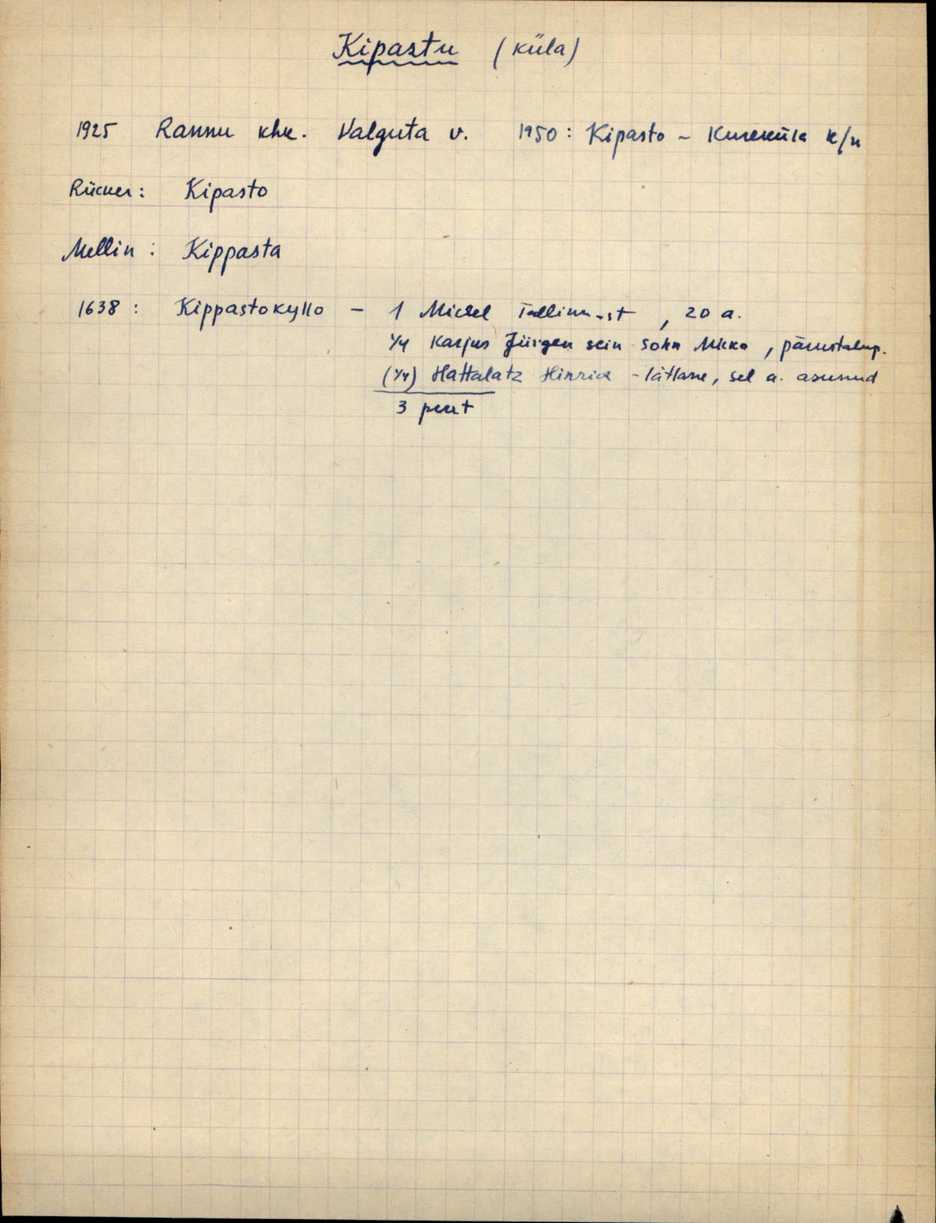 Kipastu (küla)
1925 Rannu khk. Valguta v. 1950: Kipasto - Kureküla k/n
Rücker: Kipasto
Mellin: Kippasta
1638: Kippastokyllo - 1 Michel Tallinn-st, 20 a.
1/4 Karjus Jürgen sein Sohn
(1/4) Hattalatz Hinrich - lätlane, sel a. asunud
3 peret